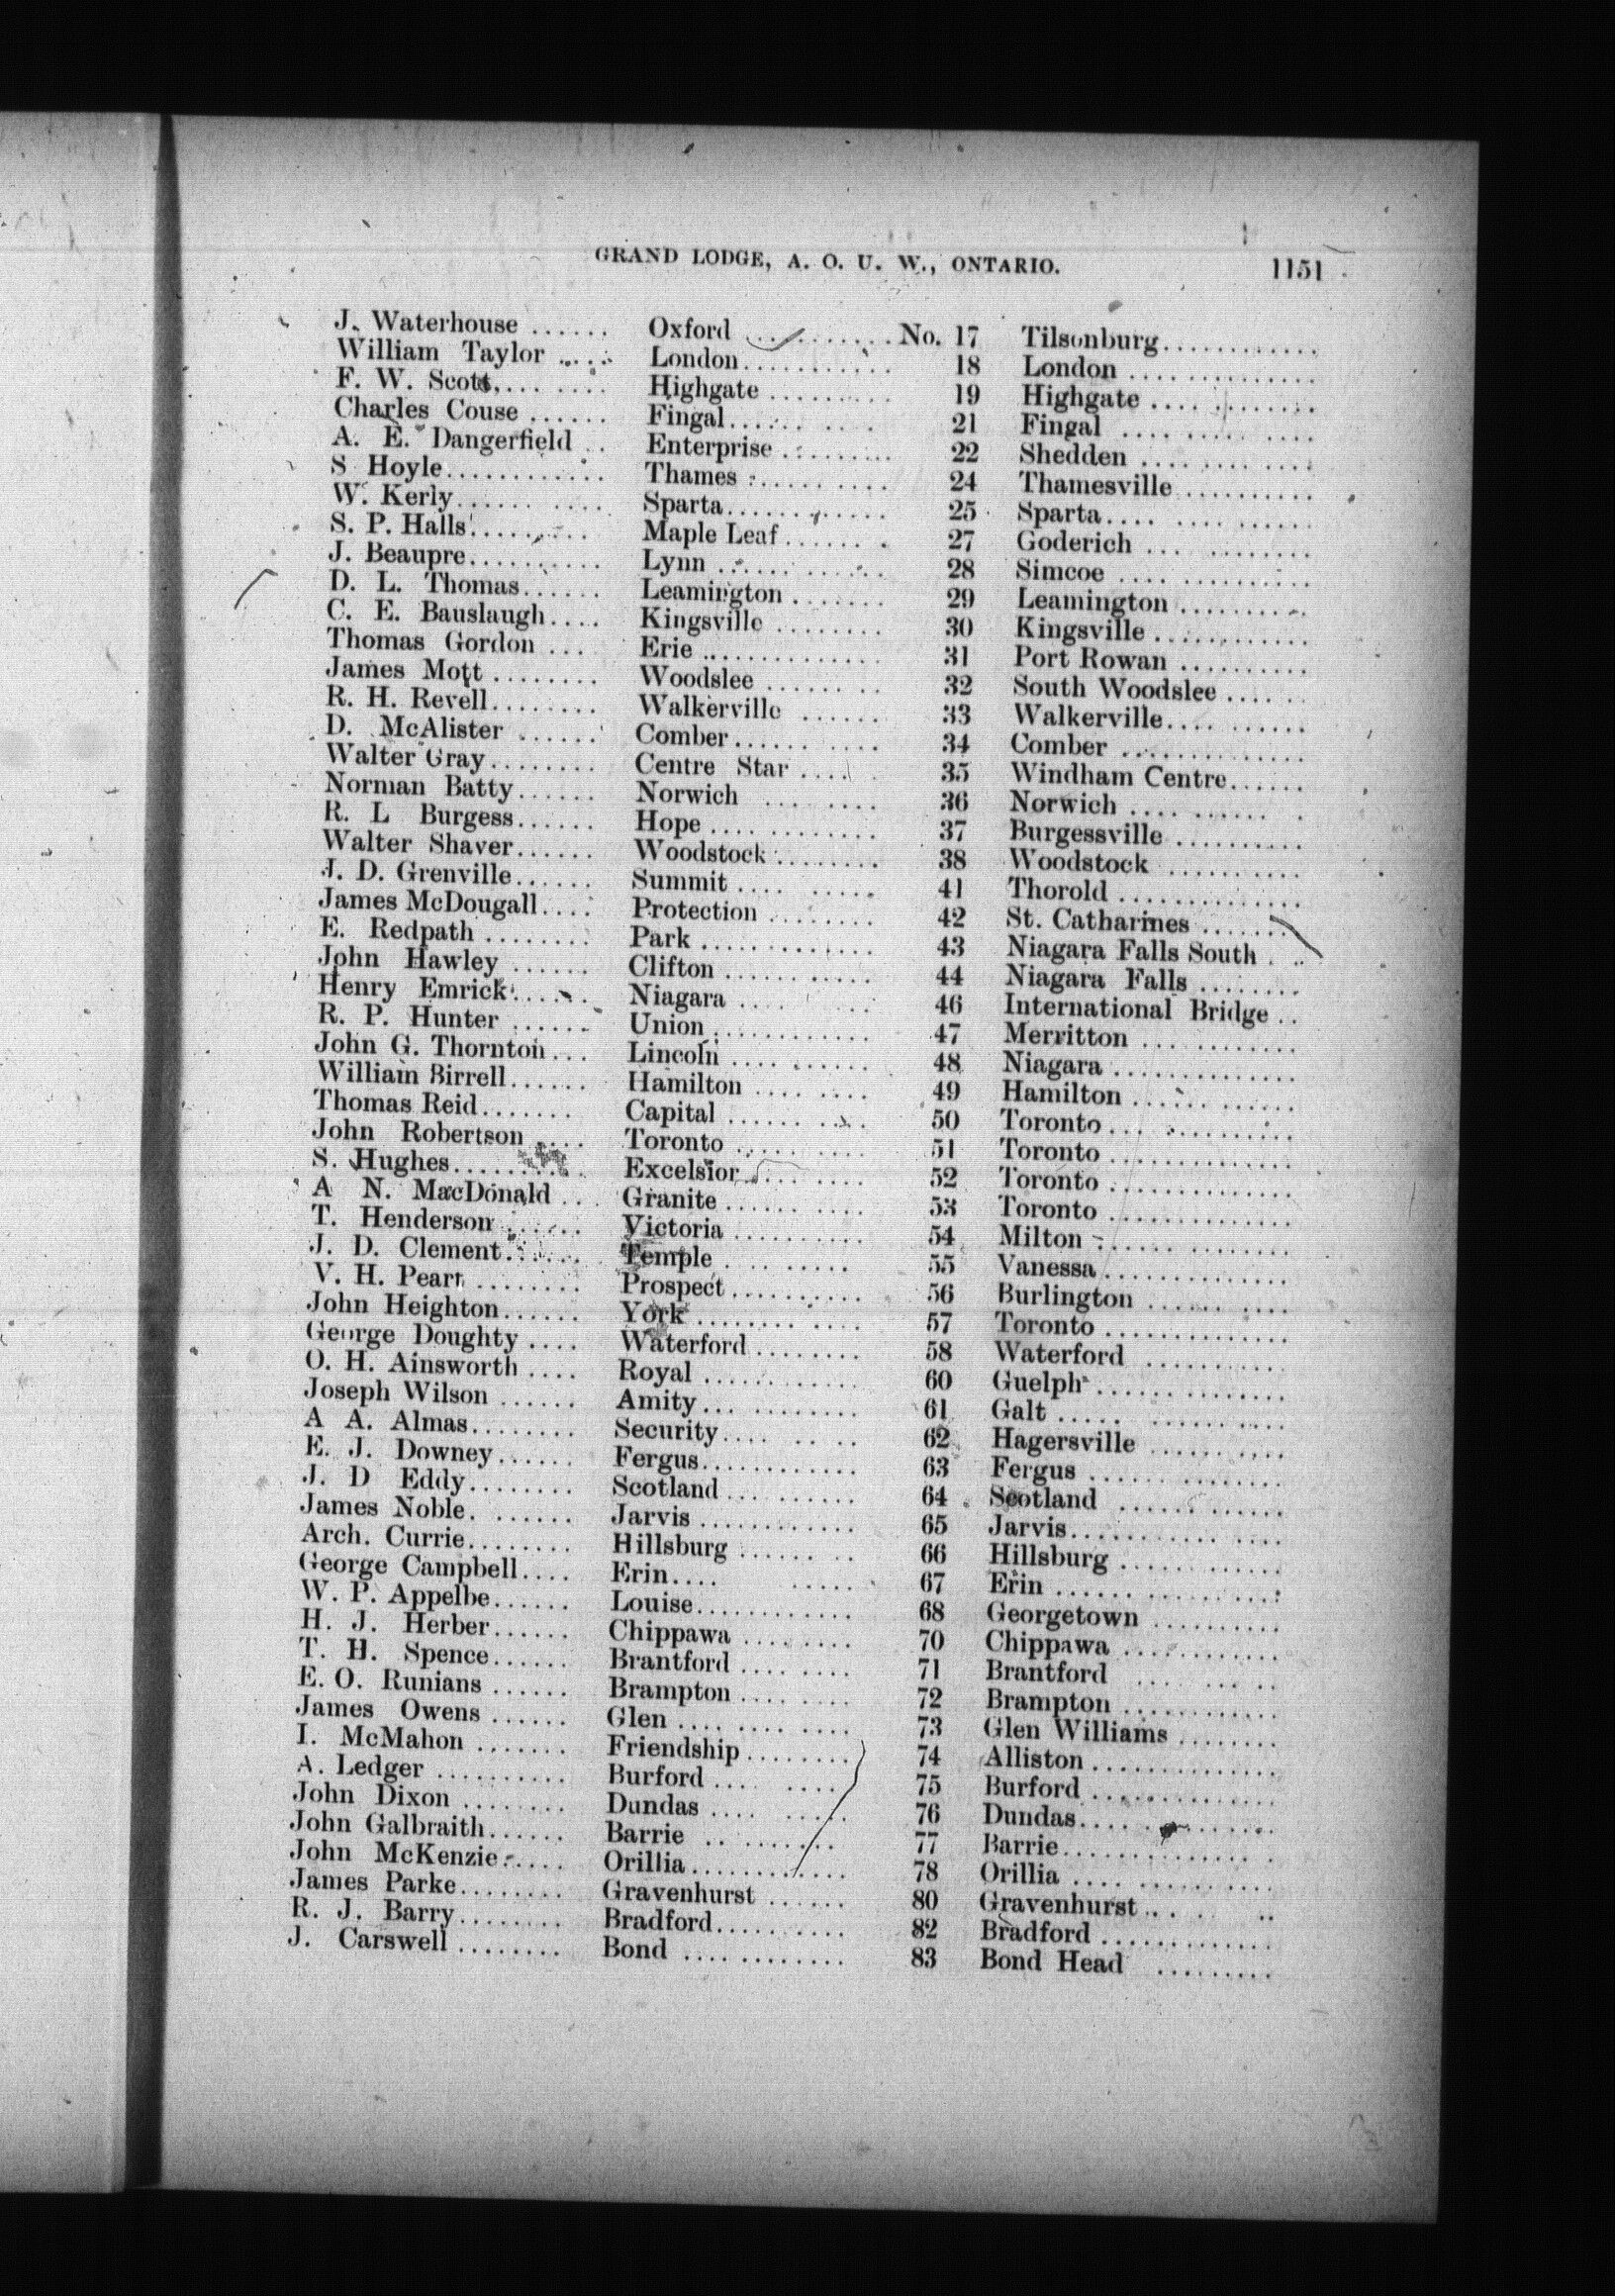 GRAND LODGE, A. O. U. W., ONTARIO. 1151
J. Waterhouse ...... Oxford .......... No. 17 Tilsonburg............
William Taylor ..... London........... 18 London ..............
F. W. Scott......... Highgate ......... 19 Highgate ............
Charles Couse ...... Fingal........... 21 Fingal ..............
A. E. Dangerfield .. Enterprise ........ 22 Shedden .............
S Hoyle............ Thames ........... 24 Thamesville..........
W. Kerly........... Sparta............ 25 Sparta...............
S. P. Halls......... Maple Leaf........ 27 Goderich ............
J. Beaupre.......... Lynn ............. 28 Simcoe ..............
D. L. Thomas...... Leamington ....... 29 Leamington ..........
C. E. Bauslaugh.... Kingsville ........ 30 Kingsville ............
Thomas Gordon .... Erie .............. 31 Port Rowan ..........
James Mott ........ Woodslee ......... 32 South Woodslee ......
R. H. Revell........ Walkerville ...... 33 Walkerville...........
D. McAlister ...... Comber........... 34 Comber ..............
Walter Gray........ Centre Star ..... 35 Windham Centre......
Norman Batty...... Norwich ........ 36 Norwich ............
R. L Burgess...... Hope ............. 37 Burgessville ..........
Walter Shaver...... Woodstock ........ 38 Woodstock ..........
J. D. Grenville...... Summit .......... 41 Thorold ..............
James McDougall.... Protection ........ 42 St. Catharines .......
E. Redpath ........ Park ............. 43 Niagara Falls South ...
John Hawley ...... Clifton ........... 44 Niagara Falls ........
Henry Emrick...... Niagara .......... 46 International Bridge ..
R. P. Hunter ...... Union............ 47 Merritton ............
John G. Thornton... Lincoln .......... 48 Niagara ..............
William Birrell...... Hamilton ........ 49 Hamilton ............
Thomas Reid....... Capital .......... 50 Toronto..............
John Robertson .... Toronto .......... 51 Toronto ..............
S. Hughes.......... Excelsior......... 52 Toronto ..............
A N. MacDonald ... Granite .......... 53 Toronto ..............
T. Henderson ...... Victoria .......... 54 Milton ..............
J. D. Clement...... Temple ......... 55 Vanessa..............
V. H. Peart ........ Prospect.......... 56 Burlington ..........
John Heighton...... York ............ 57 Toronto ..............
George Doughty .... Waterford ........ 58 Waterford ..........
O. H. Ainsworth .... Royal ............ 60 Guelph..............
Joseph Wilson ...... Amity............ 61 Galt ................
A A. Almas........ Security.......... 62 Hagersville ..........
E. J. Downey...... Fergus............ 63 Fergus ..............
J. D Eddy........ Scotland .......... 64 Scotland ............
James Noble. ...... Jarvis ............ 65 Jarvis................
Arch. Currie........ Hillsburg ........ 66 Hillsburg ............
George Campbell.... Erin.... ..... 67 Erin ................
W. P. Appelbe...... Louise............ 68 Georgetown ..........
H. J. Herber...... Chippawa ........ 70 Chippawa ............
T. H. Spence...... Brantford ........ 71 Brantford .........
E. O. Runians ...... Brampton ........ 72 Brampton ............
James Owens ...... Glen ............ 73 Glen Williams ........
I. McMahon ....... Friendship........ 74 Alliston ..............
A. Ledger .......... Burford ........ 75 Burford ..............
John Dixon ........ Dundas .......... 76 Dundas..............
John Galbraith...... Barrie .......... 77 Barrie..............
John McKenzie..... Orillia............ 78 Orillia ..............
James Parke........ Gravenhurst ...... 80 Gravenhurst .....
R. J. Barry........ Bradford.......... 82 Bradford ............
J. Carswell ........ Bond ............ 83 Bond Head .........